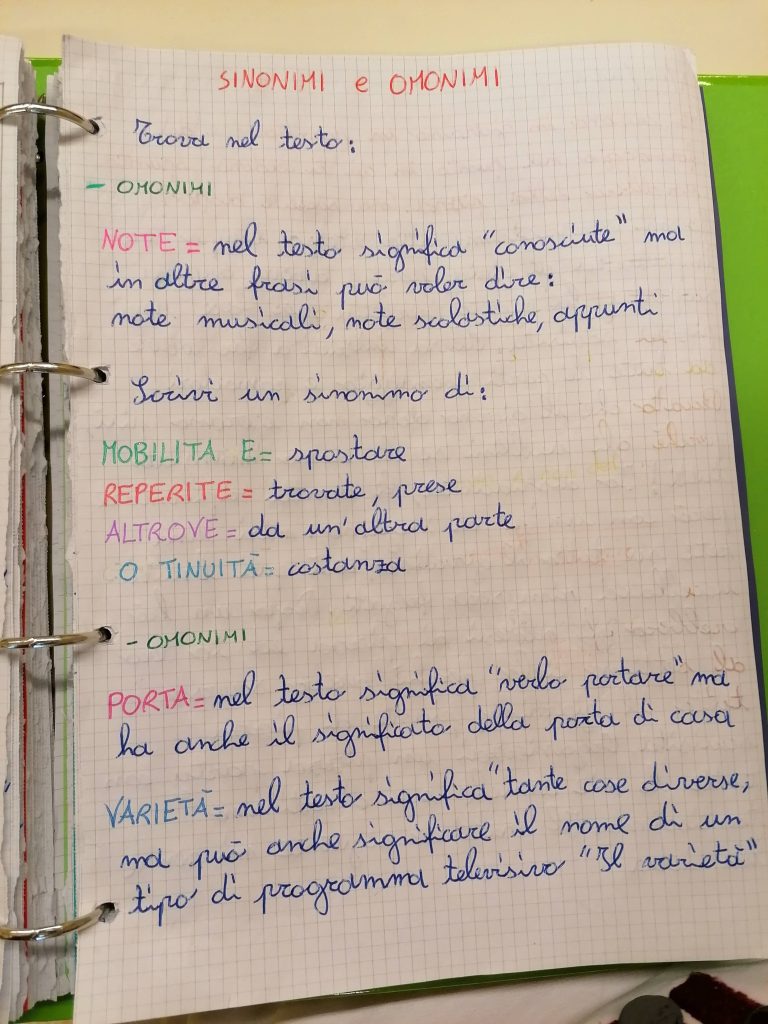 SINONIMI e OMONIMI
Trova nel testo:
- OMONIMI
NOTE = nel testo significa "conosciute" ma
in altre frasi può voler dire:
note musicali, note scolastiche, appunti
Scrivi un sinonimo di:
MOBILITA E= spostare
REPERITE = trovate, prese
ALTROVE = da un'altra parte
O TINUITÀ = costanza
- OMONIMI
PORTA = nel testo significa "verbo portare" ma
ha anche il significato della porta di casa
VARIETÀ = nel testo significa "tante cose diverse,
ma può anche significare il nome di un
tipo di programma televisivo "Il varietà"